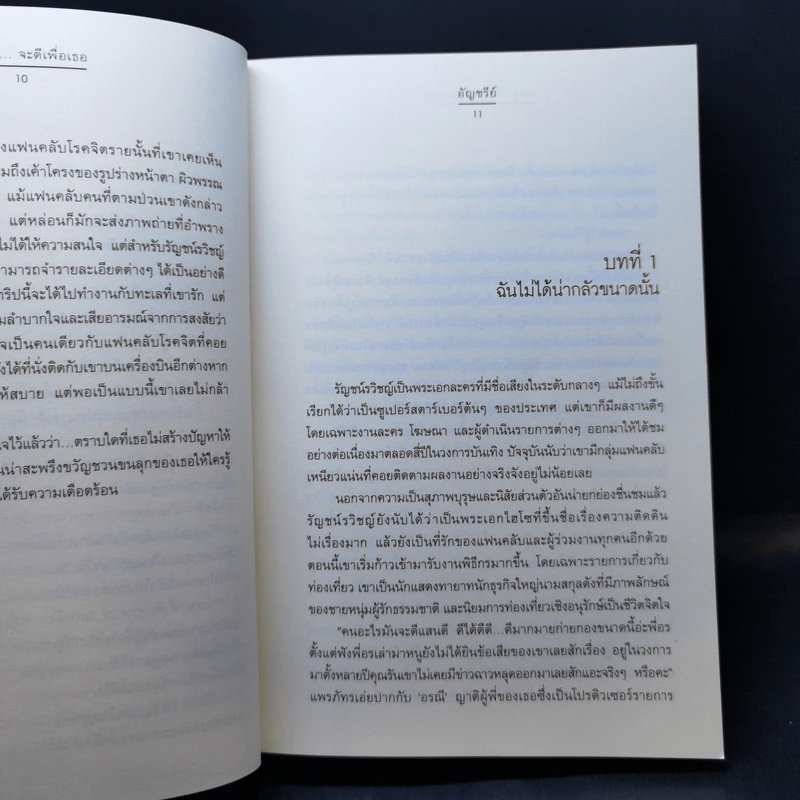 ... จะดีเพื่อเธอ
10
งแฟนคลับโรคจิตรายนั้นที่เขาเคยเห็น
มถึงเค้าโครงของรูปร่างหน้าตา ผิวพรรณ
แม้แฟนคลับคนที่ตามป่วนเขาดังกล่าว
แต่หล่อนก็มักจะส่งภาพถ่ายที่อำพราง
ไม่ได้ให้ความสนใจ แต่สำหรับรัญชน์รวิชญ์
ามารถจำรายละเอียดต่างๆ ได้เป็นอย่างดี
ทริปนี้จะได้ไปทำงานกับทะเลที่เขารัก แต่
มลำบากใจและเสียอารมณ์จากการสงสัยว่า
จเป็นคนเดียวกับแฟนคลับโรคจิตที่คอย
งได้ที่นั่งติดกับเขาบนเครื่องบินอีกต่างหาก
ห้สบาย แต่พอเป็นแบบนี้เขาเลยไม่กล้า
จไว้แล้วว่า...ตราบใดที่เธอไม่สร้างปัญหาให้
นน่าสะพรึงขวัญชวนขนลุกของเธอให้ใครรู้
ด้รับความเดือดร้อน
อัญชรีย์
11
บทที่ 1
ฉันไม่ได้น่ากลัวขนาดนั้น
รัญชน์รวิชญ์เป็นพระเอกละครที่มีชื่อเสียงในระดับกลางๆ แม้ไม่ถึงขั้น
เรียกได้ว่าเป็นซูเปอร์สตาร์เบอร์ต้นๆ ของประเทศ แต่เขาก็มีผลงานดีๆ
โดยเฉพาะงานละคร โฆษณา และผู้ดำเนินรายการต่างๆ ออกมาให้ได้ชม
อย่างต่อเนื่องมาตลอดสี่ปีในวงการบันเทิง ปัจจุบันนับว่าเขามีกลุ่มแฟนคลับ
เหนียวแน่นที่คอยติดตามผลงานอย่างจริงจังอยู่ไม่น้อยเลย
นอกจากความเป็นสุภาพบุรุษและนิสัยส่วนตัวอันน่ายกย่องชื่นชมแล้ว
รัญชน์รวิชญ์ยังนับได้ว่าเป็นพระเอกไฮโซที่ขึ้นชื่อเรื่องความติดดิน
ไม่เรื่องมาก แล้วยังเป็นที่รักของแฟนคลับและผู้ร่วมงานทุกคนอีกด้วย
ตอนนี้เขาเริ่มก้าวเข้ามารับงานพิธีกรมากขึ้น โดยเฉพาะรายการเกี่ยวกับ
ท่องเที่ยว เขาเป็นนักแสดงทายาทนักธุรกิจใหญ่นามสกุลดังที่มีภาพลักษณ์
ของชายหนุ่มผู้รักธรรมชาติ และนิยมการท่องเที่ยวเชิงอนุรักษ์เป็นชีวิตจิตใจ
"คนอะไรมันจะดีแสนดี ดีได้ดีดี...ดีมากมายก่ายกองขนาดนี้อ่ะพี่อร
ตั้งแต่ฟังพี่อรเล่ามาหนูยังไม่ได้ยินข้อเสียของเขาเลยสักเรื่อง อยู่ในวงการ
มาตั้งหลายปีคุณรันเขาไม่เคยมีข่าวฉาวหลุดออกมาเลยสักแอะจริงๆ หรือคะ"
แพรภัทรเอ่ยปากกับ 'อรณี' ญาติผู้พี่ของเธอซึ่งเป็นโปรดิวเซอร์รายการ